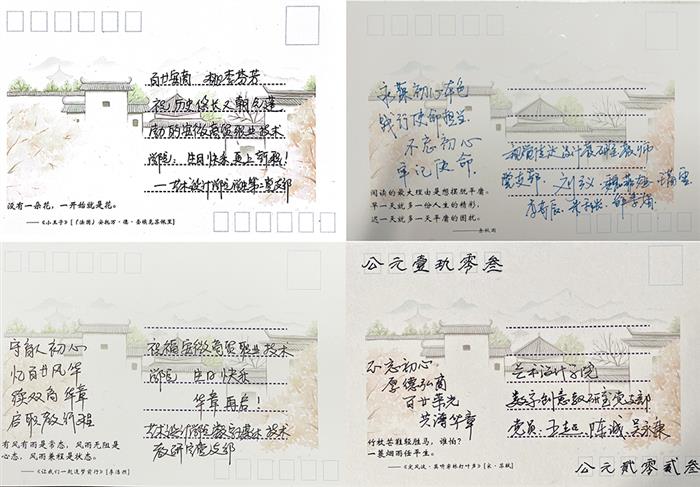 百廿安商 桃李芬芳
祝历史悠久又朝气蓬
勃的安徽商贸职业技术
学院：生日快乐 再上新程！
——艺术设计学院 第二党支部
没有一朵花，一开始就是花。
——《小王子》[（法国）安托万·德·圣埃克苏佩里]
永葆初心本色
践行使命担当
不忘初心
牢记使命
视觉传达设计教研室教师
党支部
阅读的最大理由是想摆脱平庸，
早一天就多一份人生的精彩，
迟一天就多一天平庸的困扰。
——余秋雨
守育人初心
忆百廿风华
续双商华章
启职教新程
祝福安徽商贸职业技术
学院 生日快乐
华章再启！
艺术设计学院数字媒体技术
教研室党支部
有风有雨是常态，风雨无阻是
心态，风雨兼程是状态。
——《让我们一起追梦前行》[李浩然]
公元壹玖零叁
不忘初心
厚德弘商
百廿年光
共谱华章
艺术设计学院
数字创意教研室党支部
党员：王喆、陈诚、吴示秉
竹杖芒鞋轻胜马，谁怕？
一蓑烟雨任平生。
——《定风波·莫听穿林打叶声》[宋·苏轼]
公元贰零贰叁